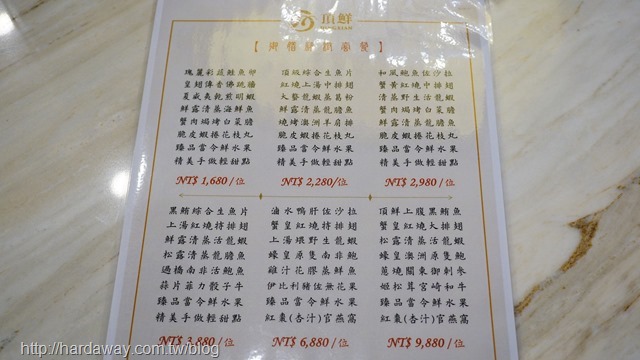 頂鮮
瑰麗彩蔬鮭魚卵
皇翅傳香佛跳牆
夏威夷乾煎明蝦
鮮露清蒸海鮮魚
蟹肉焗烤白菜膽
脆皮蝦捲花枝丸
臻品當令鮮水果
精美手做輕甜點
NT$ 1,680 /位
頂級綜合生魚片
紅燒上湯中排翅
大蟹龍蝦蒸葛粉
鮮露清蒸龍膽魚
燒烤澳洲羊肩排
脆皮蝦捲花枝丸
臻品當令鮮水果
精美手做輕甜點
NT$ 2,280 /位
和風鮑魚佐沙拉
蟹黃紅燒中排翅
清蒸野生活龍蝦
鮮露清蒸龍膽魚
蟹肉焗烤白菜膽
脆皮蝦捲花枝丸
臻品當令鮮水果
精美手做輕甜點
NT$ 2,980 /位
黑鮪綜合生魚片
上湯紅燒排翅
鮮露清蒸活龍蝦
松露清蒸龍膽魚
過橋南非活鮑魚
蒜片菲力骰子牛
臻品當令鮮水果
精美手做輕甜點
NT$ 3,880 /位
滷水鴨肝佐沙拉
蟹皇紅燒排翅
上湯焗野生龍蝦
蠔皇原隻南非鮑
雞汁花膠蒸鮮魚
伊比利豬佐無花果
臻品當令鮮水果
紅棗(杏汁)官燕窩
NT$ 6,880 /位
頂鮮上腹黑鮪魚
蟹皇紅燒大排翅
松露清蒸活龍蝦
蠔皇澳洲原隻鮑
蔥燒關東御刺參
姬松茸宮崎和牛
臻品當令鮮水果
紅棗(杏汁)官燕窩
NT$ 9,880 /位
http://hardaway.com.tw/blog